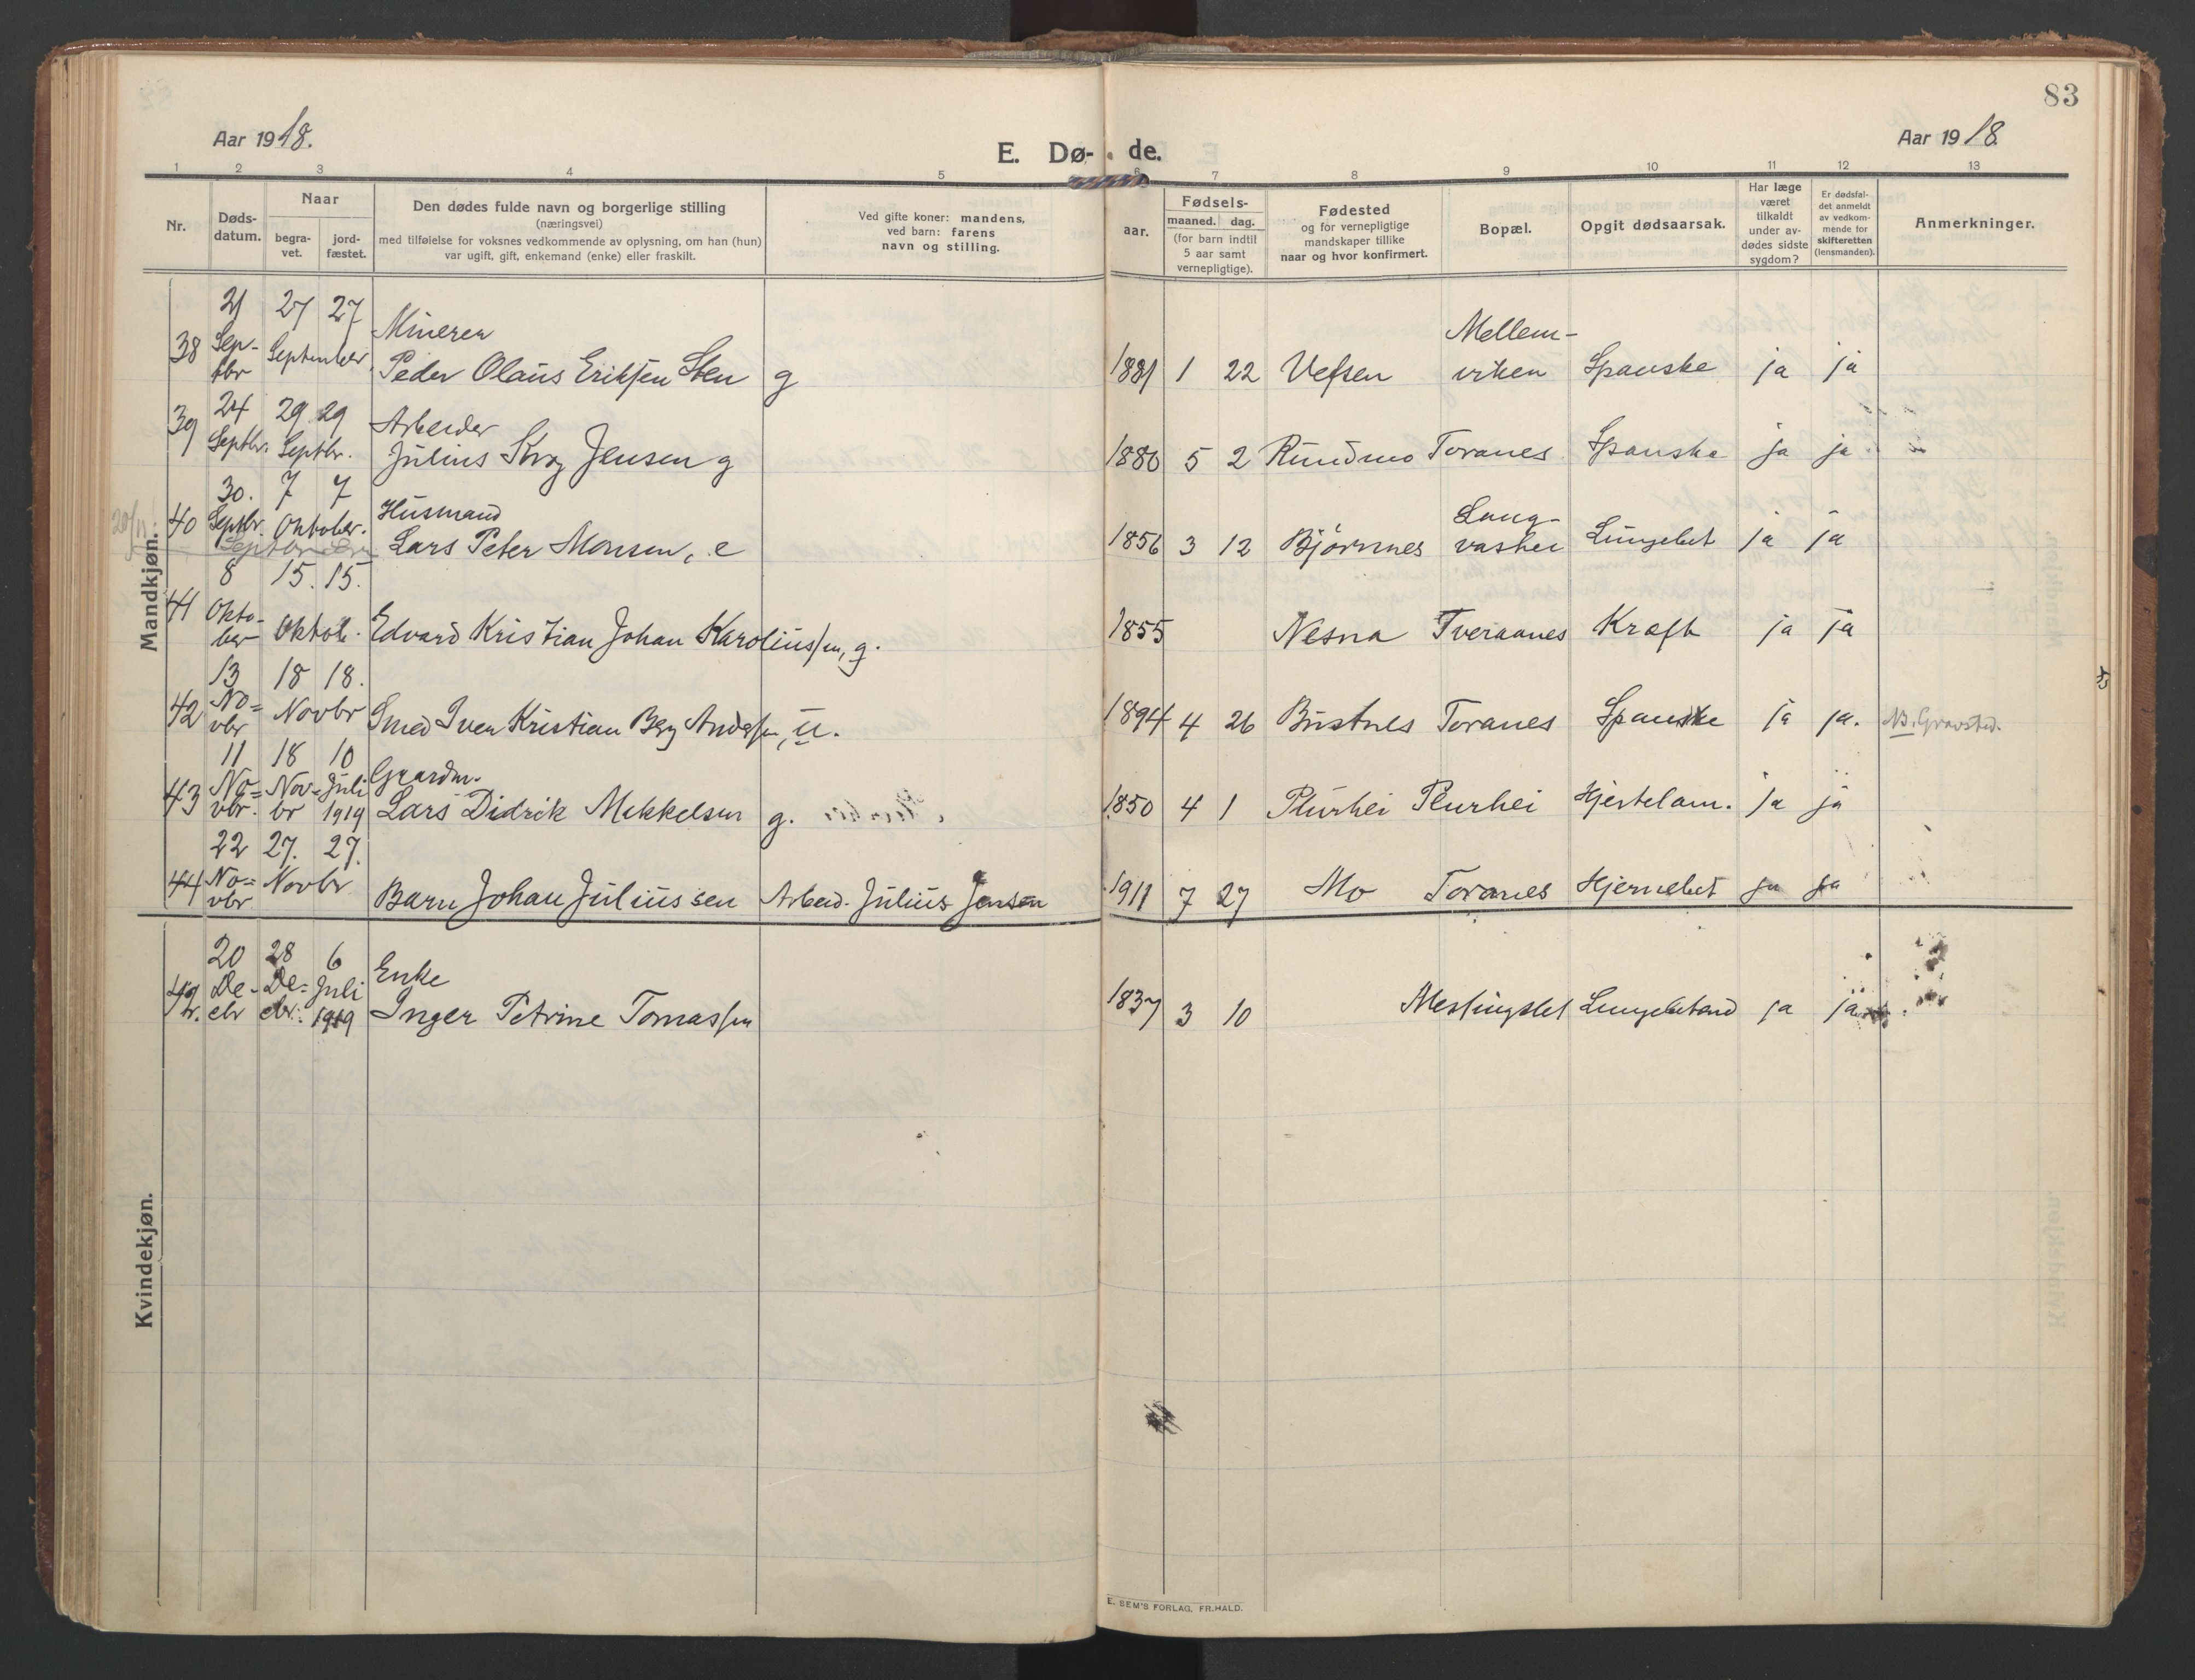 83
Aar 1918.
E. Dø- de.
Aar 1918
1 2 3 4 5 6 7 8 9 10 11 12 13
Nr.
Døds-
datum.
Naar
begra-
vet.
jord-
fæstet.
Den dødes fulde navn og borgerlige stilling
(næringsvei)
med tilføielse for voksnes vedkommende av oplysning, om han (hun)
var ugift, gift, enkemand (enke) eller fraskilt.
Ved gifte koner: mandens,
ved barn: farens
navn og stilling.
aar.
Fødsels-
maaned. dag.
(for barn indtil
5 aar samt
vernepligtige).
Fødested
og for vernepligtige
mandskaper tillike
naar og hvor konfirmert.
Bopæl.
Opgit dødsaarsak.
Har læge
været
tilkaldt
under av-
dødes sidste
sygdom?
Er dødsfal-
det anmeldt
av vedkom-
mende for
skifteretten
(lensmanden).
Anmerkninger.
Mandkjøn.
21 27 27 Minerer Mellem-
38 Sep- September
tbr Peder Olaus Eriksen Sten g 1881 1 22 Vefsen viken Spanske ja ja
24 29 29 Arbeider
39 Septbr. Septbr. Julius Skog Jensen g 1880 5 2 Rundmo Toranes Spanske ja ja
30. 7 7 Husmand Lang-
40 Septbr. Oktober. Lars Peter Monsen, e 1856 3 12 Bjørnnes vashei Lungebet ja ja
8 15. 15.
41 Okto- Oktob. Edvard Kristian Johan Karoliussen, g. 1855 Nesna Tveraanes Kræft ja ja
ber
13 18 18.
42 No= Novbr Smed Iver Kristian Berg Anderssen, u. 1894 4 26 Bustnes Toranes Spanske ja ja. NB. Gravsted.
vbr
11 18 10 Gaardm.
43 No= Nov= Juli
vbr. br 1919 Lars Didrik Mikkelsen g. 1850 4 1 Plurhei Plurhei Hjertelam. ja ja
22 27. 27.
44 No= Novbr
vbr Barn Johan Juliussen Arbeid. Julius Jensen 1911 7 27 Mo Toranes Hjernebet ja ja
Kvindekjøn.
20 28 6 Enke
De- De= Juli
cbr cbr. 1919 Inger Petrine Tomassen 1837 3 10 Messingslet Lungebetænd ja ja
E. SEM'S FORLAG, FR.HALD.